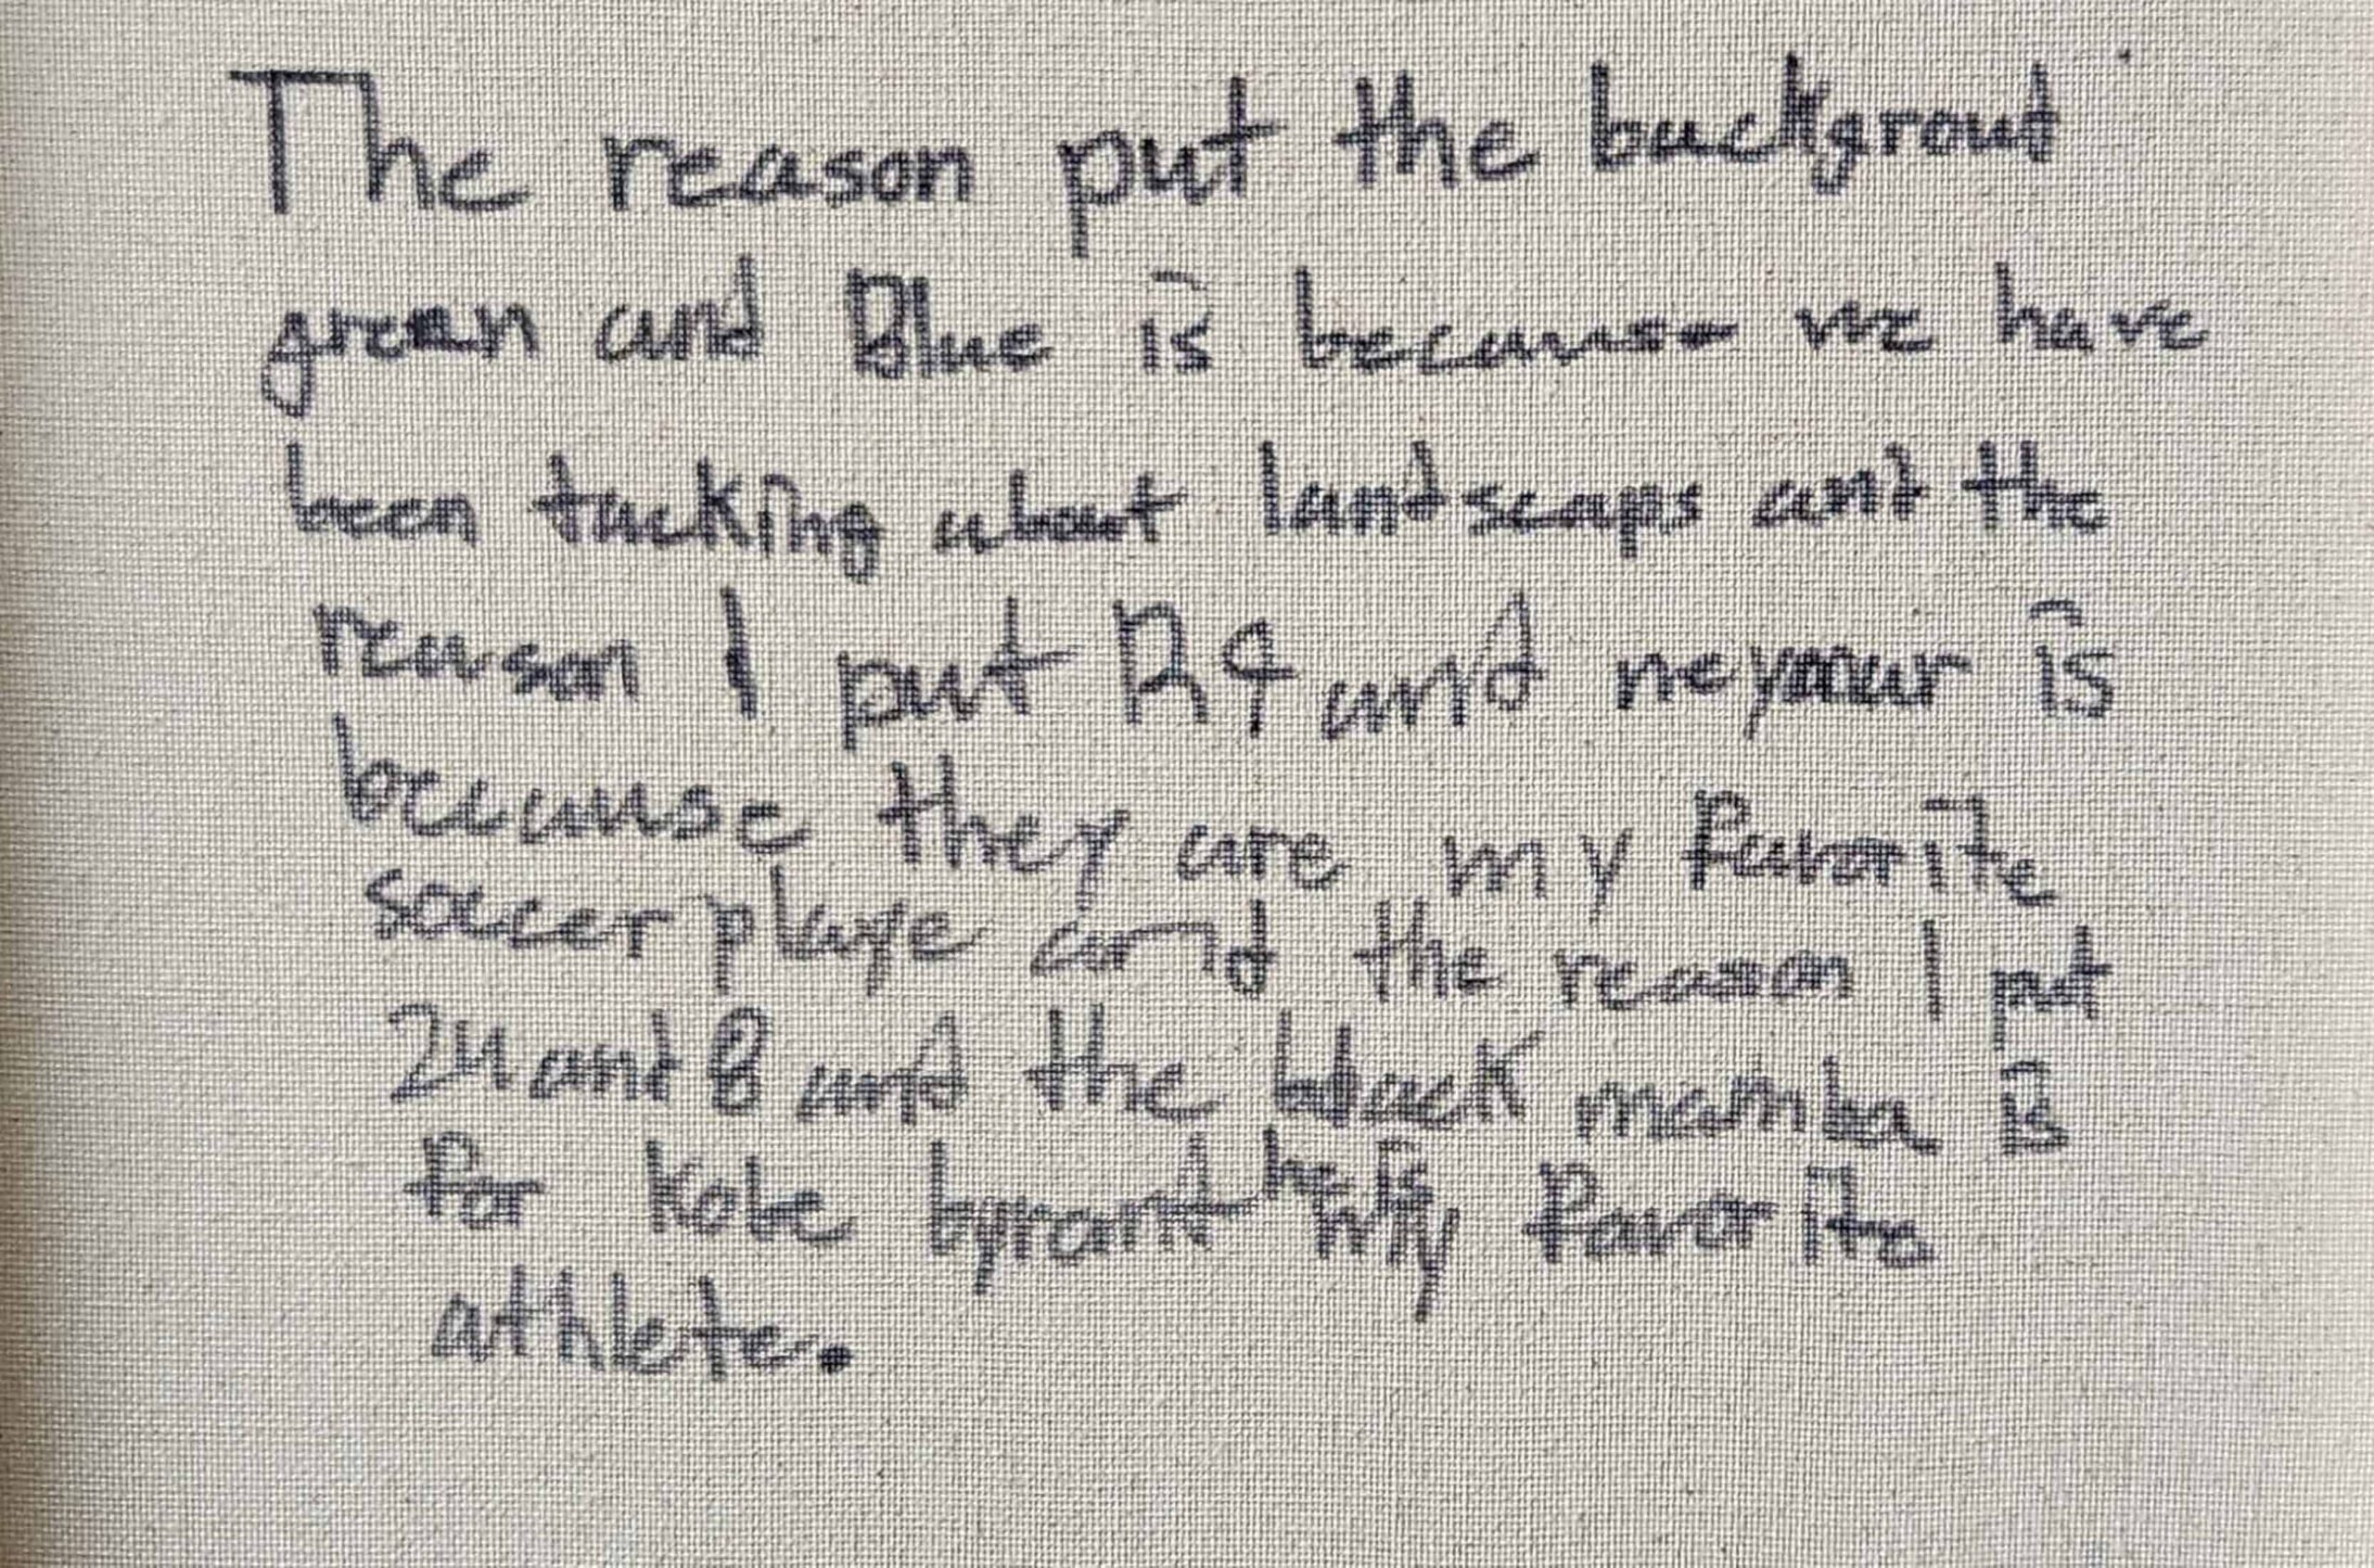 The reason put the backgrout
green and Blue is because we have
been tacking about landscaps ant the
reason I put R9 and neymar is
because they are my favorite
soccer playe and the reason I put
24 ant 8 and the black mamba is
for Kobe byrant he is my favorite
athlete.